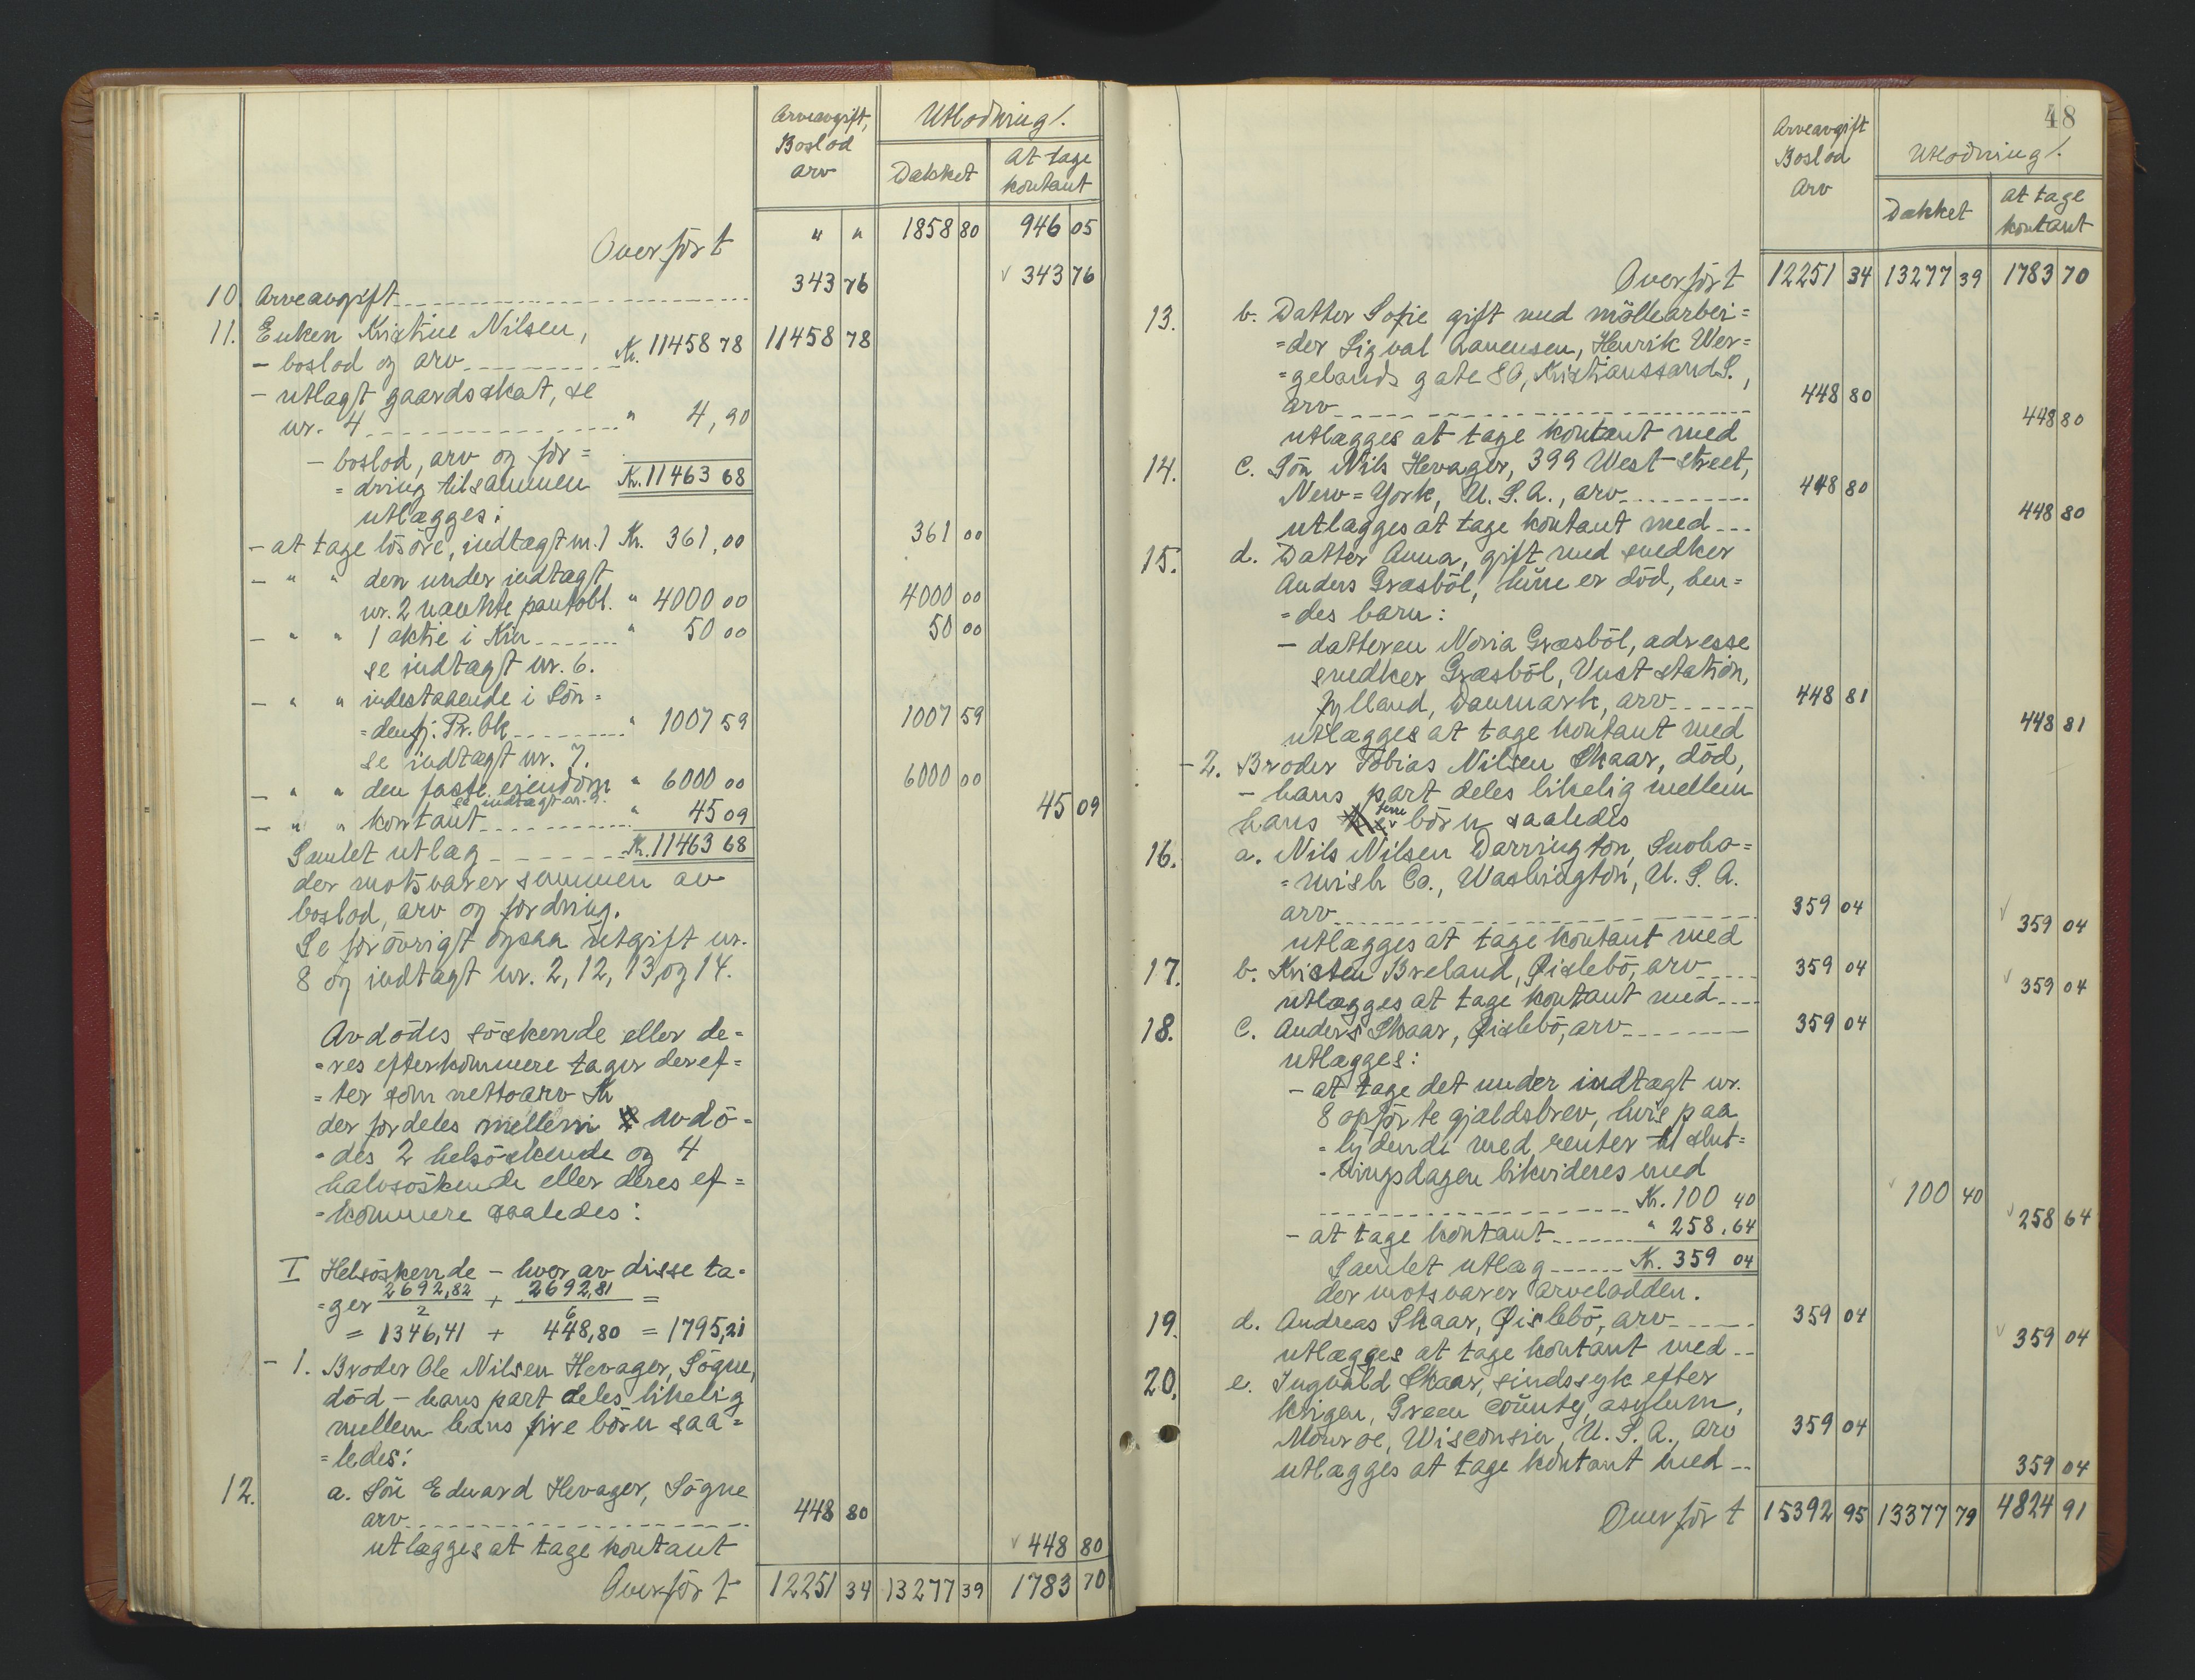 Arveavgift, Boslod arv
Utlodning!
Dækket
At tage kontant
Overført " " 1858 80 946 05
10. Arveavgift 343 76 √ 343 76
11. Enken Kristine Nilsen,
- boslod og arv Kr. 11458 78 11458 78
- utlagt gaardsskat, se
nr. 4 " 4,90
- boslod, arv og for=
=dring tilsammen Kr. 11463 68
utlægges:
- at tage løsøre, indtægt nr. 1 Kr. 361,00 361 00
- " " den under indtægt
nr. 2 nævnte pantobl. " 4000 00 4000 00
- " " 1 aktie i Kin " 50 00 50 00
se indtægt nr. 6.
- " " indestaaende i Søn=
=denfj. Pr. bk " 1007 59 1007 59
se indtægt nr. 7.
- " " den faste eiendom " 6000 00 6000 00
se indtægt nr. 9.
- " " kontant " 45 09 45 09
Samlet utlæg Kr. 11463 68
der motsvarer summen av
boslod, arv og fordring.
Se forøvrigt ogsaa utgift nr.
8 og indtægt nr. 2, 12, 13, og 14.
Avdødes søskende eller de=
=res efterkommere tager deref=
=ter som nettoarv Kr
der fordeles mellem avdø=
=des 2 helsøskende og 4
halvsøskende eller deres ef=
=kommere saaledes:
I Helsøskende - hver av disse ta=
=ger 2692,82/2 + 2692,81/6 =
= 1346,41 + 448,80 = 1795,21
- 1. Broder Ole Nilsen Hevager, Søgne,
død - hans part deles likelig
mellem hans fire børn saa=
=ledes:
12. a. Søn Edvard Hevager, Søgne
arv 448 80
utlægges at tage kontant √ 448 80
Overført 12251 34 13277 39 1783 70
48
Arveavgift Boslod Arv
Utlodning!
Dækket
At tage kontant
Overført 12251 34 13277 39 1783 70
13. b. Datter Sofie gift med møllearbei=
=der Sigval Aanensen, Henrik Wer=
=gelands gate 80, Kristianssand S.,
arv 448 80
utlægges at tage kontant med 448 80
14. c. Søn Nils Hevager, 399 West street,
New=York, U. S. A., arv 448 80
utlægges at tage kontant med 448 80
15. d. Datter Anna, gift med snedker
Anders Græsbøl, hun er død, hen=
=des barn:
- datteren Noria Græsbøl, adresse
snedker Græsbøl, Vust station,
Jylland, Danmark, arv 448 81
utlægges at tage kontant med 448 81
- 2. Broder Tobias Nilsen Skaar, død,
- hans part deles likelig mellem
hans børn saaledes
16. a. Nils Nilsen Darrington, Snoho=
=mish Co., Washington, U. S. A.
arv 359 04
utlægges at tage kontant med √ 359 04
17. b. Kristen Breland, Øislebø, arv 359 04
utlægges at tage kontant med √ 359 04
18. c. Anders Skaar, Øislebø, arv 359 04
utlægges:
- at tage det under indtægt nr.
8 opførte gjældsbrev, hvis paa
=lydende med renter til slut=
=ningsdagen likvideres med
Kr. 100 40 √ 100 40
- at tage kontant " 258.64 √ 258 64
Samlet utlæg Kr. 359 04
der motsvarer arvelodden.
19. d. Andreas Skaar, Øislebø, arv 359 04
utlægges at tage kontant med √ 359 04
20. e. Ingvald Skaar, sindssyk efter
krigen, Green county asylum,
Monroe, Wisconsin, U. S. A., arv 359 04
utlægges at tage kontant med 359 04
Overført 15392 95 13377 79 4824 91